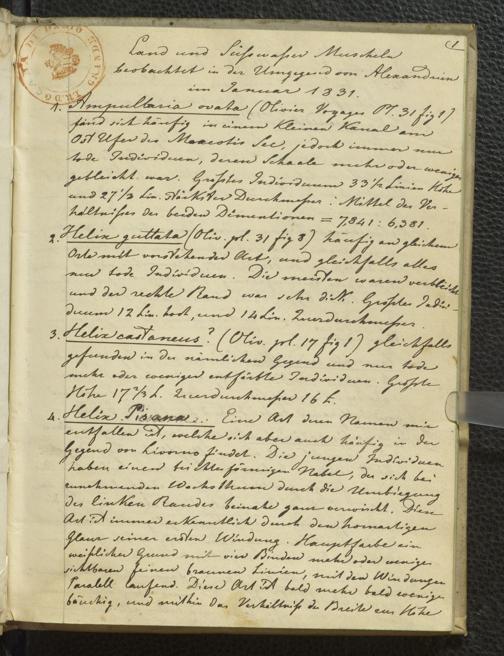 (1
Land und Süsswasser Muscheln
beobachtet in der Umgegend von Alexandrien
im Januar 1831.
1. Ampullaria ovata (Olivier Voyages Pl. 31 fig 1)
fand sich häufig in einem kleinen Kanal am
Ost Ufer des Mareotis See, jedoch immer nur
tode Individuen, deren Schaale mehr oder weniger
gebleicht war. Grösstes Individuum 33½ Linien Höhe
und 27⅓ Lin. stärkster Durchmesser: Mittel des Ver-
hältnisses der beyden Dimentionen = 7,841 : 6,381.
2. Helix guttata (Oliv. pl. 31 fig 8) häufig an gleichem
Orte mit vorstehender Art, und gleichfalls alles
nur tode Individuen. Die meisten waren verbleicht
und der rechte Rand war sehr dick. Grösstes Indivi-
duum 12 Lin. hoch, und 14 Lin. Querdurchmesser.
3. Helix castaneus? (Oliv. pl. 17 fig 1) gleichfalls
gefunden in der nämlichen Gegend und nur tode
mehr oder weniger entfärbte Individuen. Grösste
Höhe 17⅔ L. Querdurchmesser 16 L.
4. Helix Pisana: Eine Art deren Namen mir
entfallen ist, welche sich aber auch häufig in der
Gegend von Livorno findet. Die jungen Individuen
haben einen trichterförmigen Nabel, der sich bei
zunehmendem Wachsthum durch die Umbiegung
des linken Randes beinahe ganz verwischt. Diese
Art ist immer erkenntlich durch den hornartigen
Glanz seiner ersten Windung. Hauptfarbe ein
weisslicher Grund mit vier Binden mehr oder weniger
sichtbaren feinen braunen Linien, mit den Windungen
Paralell laufend. Diese Art ist bald mehr bald weniger
bauchig, und mithin das Verhältniss der Breite zur Höhe